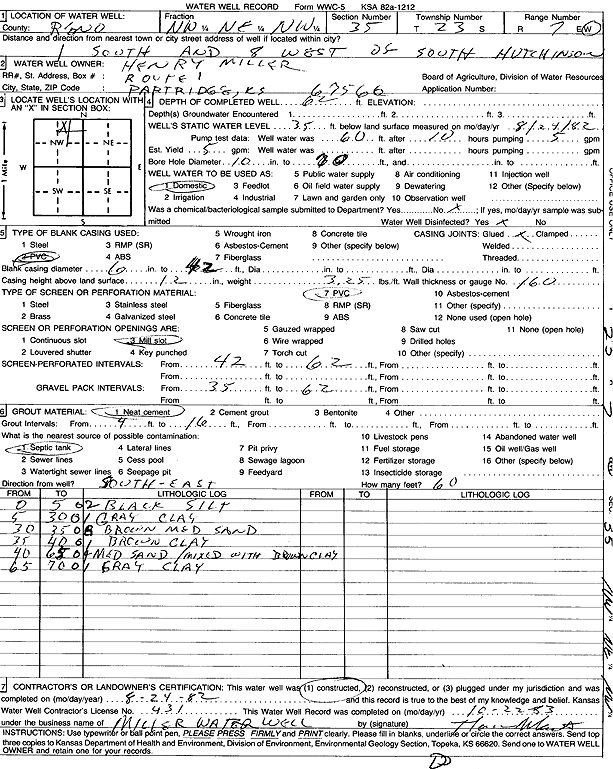 WATER WELL RECORD Form WWC-5 KSA 82a-1212
1 LOCATION OF WATER WELL: Fraction Section Number Township Number Range Number
County: RENO NW ¼ NE ¼ NW ¼ 35 T 23 S R 7 E/W
Distance and direction from nearest town or city street address of well if located within city?
1 SOUTH AND 8 WEST OF SOUTH HUTCHINSON
2 WATER WELL OWNER: HENRY MILLER
RR#, St. Address, Box # : ROUTE 1 Board of Agriculture, Division of Water Resources
City, State, ZIP Code : PARTRIDGE, KS 67566 Application Number:
3 LOCATE WELL'S LOCATION WITH AN "X" IN SECTION BOX:
N
X
NW NE
W E
SW SE
S
1 Mile
4 DEPTH OF COMPLETED WELL 62 ft. ELEVATION:
Depth(s) Groundwater Encountered 1. ft. 2. ft. 3. ft.
WELL'S STATIC WATER LEVEL 35 ft. below land surface measured on mo/day/yr 8/24/82
Pump test data: Well water was 60 ft. after 10 hours pumping 5 gpm
Est. Yield 5 gpm: Well water was ft. after hours pumping gpm
Bore Hole Diameter 10 in. to 70 ft., and in. to ft.
WELL WATER TO BE USED AS: 5 Public water supply 8 Air conditioning 11 Injection well
1 Domestic 3 Feedlot 6 Oil field water supply 9 Dewatering 12 Other (Specify below)
2 Irrigation 4 Industrial 7 Lawn and garden only 10 Observation well
Was a chemical/bacteriological sample submitted to Department? Yes No X ; If yes, mo/day/yr sample was submitted
Water Well Disinfected? Yes X No
5 TYPE OF BLANK CASING USED: 5 Wrought iron 8 Concrete tile CASING JOINTS: Glued X Clamped
1 Steel 3 RMP (SR) 6 Asbestos-Cement 9 Other (specify below) Welded
2 PVC 4 ABS 7 Fiberglass Threaded
Blank casing diameter 6 in. to 42 ft., Dia in. to ft., Dia in. to ft.
Casing height above land surface 12 in., weight 3.25 lbs./ft. Wall thickness or gauge No. 160
TYPE OF SCREEN OR PERFORATION MATERIAL: 7 PVC 10 Asbestos-cement
1 Steel 3 Stainless steel 5 Fiberglass 8 RMP (SR) 11 Other (specify)
2 Brass 4 Galvanized steel 6 Concrete tile 9 ABS 12 None used (open hole)
SCREEN OR PERFORATION OPENINGS ARE: 5 Gauzed wrapped 8 Saw cut 11 None (open hole)
1 Continuous slot 3 Mill slot 6 Wire wrapped 9 Drilled holes
2 Louvered shutter 4 Key punched 7 Torch cut 10 Other (specify)
SCREEN-PERFORATED INTERVALS: From 42 ft. to 62 ft., From ft. to ft.
From ft. to ft., From ft. to ft.
GRAVEL PACK INTERVALS: From 35 ft. to 62 ft., From ft. to ft.
From ft. to ft., From ft. to ft.
6 GROUT MATERIAL: 1 Neat cement 2 Cement grout 3 Bentonite 4 Other
Grout Intervals: From 4 ft. to 16 ft., From ft. to ft., From ft. to ft.
What is the nearest source of possible contamination: 10 Livestock pens 14 Abandoned water well
1 Septic tank 4 Lateral lines 7 Pit privy 11 Fuel storage 15 Oil well/Gas well
2 Sewer lines 5 Cess pool 8 Sewage lagoon 12 Fertilizer storage 16 Other (specify below)
3 Watertight sewer lines 6 Seepage pit 9 Feedyard 13 Insecticide storage
Direction from well? SOUTH-EAST How many feet? 60
FROM TO LITHOLOGIC LOG FROM TO LITHOLOGIC LOG
0 5 02 BLACK SILT
5 30 01 GRAY CLAY
30 35 08 BROWN MED SAND
35 40 01 BROWN CLAY
40 65 MED SAND /MIXED WITH BROWN CLAY
65 70 01 GRAY CLAY
7 CONTRACTOR'S OR LANDOWNER'S CERTIFICATION: This water well was (1) constructed, (2) reconstructed, or (3) plugged under my jurisdiction and was
completed on (mo/day/year) 8-24-82 and this record is true to the best of my knowledge and belief. Kansas
Water Well Contractor's License No. 431 This Water Well Record was completed on (mo/day/yr) 10-22-83
under the business name of MILLER WATER WELL by (signature)
INSTRUCTIONS: Use typewriter or ball point pen, PLEASE PRESS FIRMLY and PRINT clearly. Please fill in blanks, underline or circle the correct answers. Send top
three copies to Kansas Department of Health and Environment, Division of Environment, Environmental Geology Section, Topeka, KS 66620. Send one to WATER WELL
OWNER and retain one for your records.
OFFICE USE ONLY